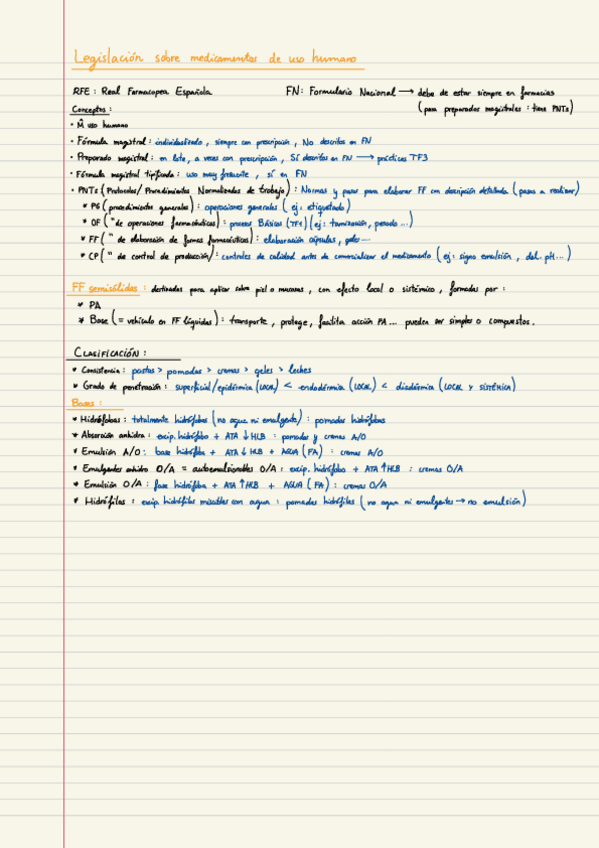 Legislación sobre medicamentos de uso humano
RFE: Real Farmacopea Española FN: Formulario Nacional → debe de estar siempre en farmacias
(para preparados magistrales: tiene PNTs)
Conceptos:
• M̂ uso humano
• Fórmula magistral: individualizado, siempre con prescripción, No descritos en FN
• Preparado magistral: en lote, a veces con prescripción, Sí descritos en FN → prácticas TF3
• Fórmula magistral tipificada: uso muy frecuente, sí en FN
• PNTs (Protocolos/Procedimientos Normalizados de trabajo): Normas y pasos para elaborar FF con descripción detallada (pasos a realizar)
* PG (procedimientos generales): operaciones generales (ej: etiquetado)
* OF (" de operaciones farmacéuticas): procesos Básicos (TF1) (ej: tamización, pesado ...)
* FF (" de elaboración de formas farmacéuticas): elaboración cápsulas, geles...
* CP (" de control de producción): controles de calidad antes de comercializar el medicamento (ej: signo emulsión, det. pH...)
FF semisólidas: destinadas para aplicar sobre piel o mucosas, con efecto local o sistémico, formadas por:
* PA
* Base (= vehículo en FF líquidas): transporte, protege, facilita acción PA... pueden ser simples o compuestos.
CLASIFICACIÓN:
* Consistencia: pastas > pomadas > cremas > geles > leches
* Grado de penetración: superficial/epidérmica (LOCAL) < endodérmica (LOCAL) < diadérmica (LOCAL Y SISTÉMICA)
Bases:
* Hidrófobas: totalmente hidrófobas (no agua ni emulgente): pomadas hidrófobas
* Absorción anhidra: excip. hidrófobo + ATA ↓ HLB: pomadas y cremas A/O
* Emulsión A/O: base hidrófoba + ATA ↓ HLB + AGUA (FA): cremas A/O
* Emulgentes anhidro O/A = autoemulsionables O/A: excip. hidrófobo + ATA ↑ HLB: cremas O/A
* Emulsión O/A: fase hidrófoba + ATA ↑ HLB + AGUA (FA): cremas O/A
* Hidrófilas: excip. hidrófilos miscibles con agua: pomadas hidrófilas (no agua ni emulgentes → no emulsión)